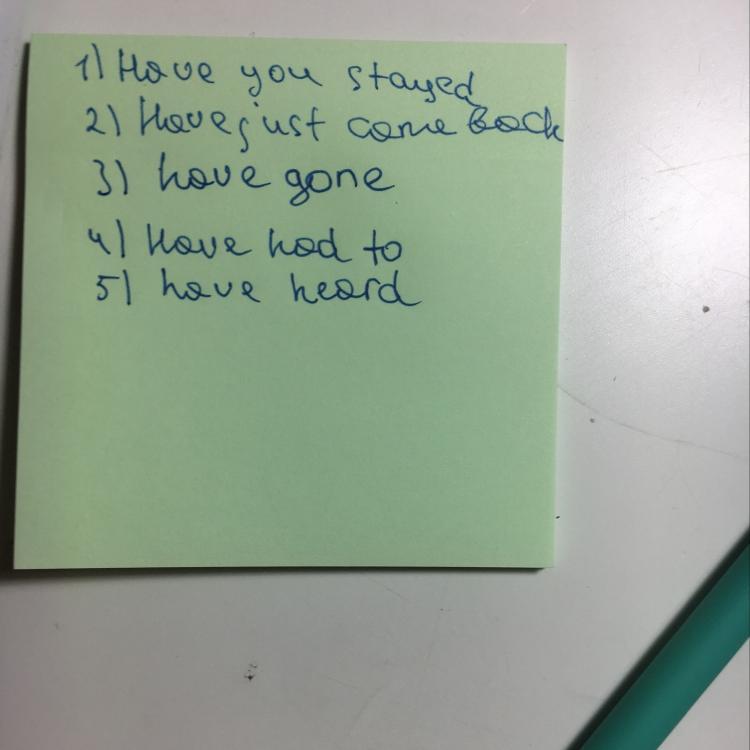 1) Have you stayed
2) Have just come back
3) have gone
4) Have had to
5) have heard